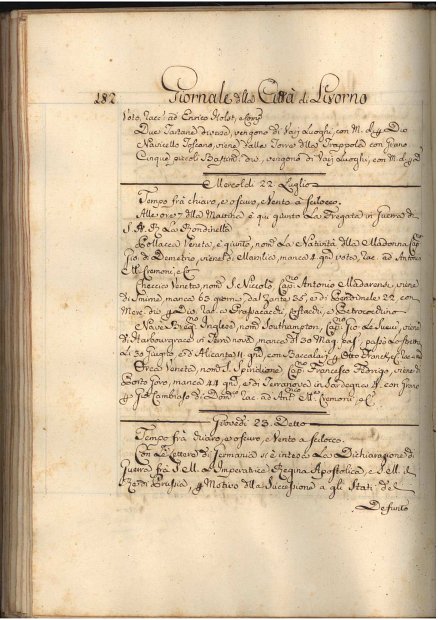 182 Giornale della Città di Livorno
Voto, racc. ad Enrico Holst, e Comp.
Due Tartane diverse, vengono di Varij Luoghi, con M. p. Dio
Navicello Toscano, viene dalla Torre della Trappola con Grano
Cinque piccoli Bastim. div. vengono di Varij Luoghi, con M. p. D.
Mercoldi 22. Luglio
Tempo frà chiaro, e oscuro, e Vento à scilocco.
Alle ore 7 della Mattina è qui giunto La Fregata in guerra di
S. A. R. La Rondinella
Pollacca Veneta, è giunto, nom. La Natività della Madonna, Cap.
Gio. di Demetrio, viene di Marsilia, manca 4 g. voto, rac. ad Antonio
M. Cremoni, e C.
Checcico Veneto, nom. S. Niccolò, Cap. Antonio Madarassi, viene
di Smirne, manca 63 giorni, dal Zante 35, e di 22 con
Merc. div. p. Dio, rac. a e Petrocochino
Nave Inglese, nom. Southampton, Cap. Gio. Le Sueur, viene
di Harbourgrace in Terra nova, manca di 30 Mag. pas.
Li 30 Giugno, e di Alicante 11 g. con Baccalà, p. Otto Franck, e C.
Veneto, nom. S. Spiridione, Cap. Francesco Fedrigo, viene di
Porto Foro, manca 44 g. e di Terranova in Sardegna con Grano
p. Gio. Cambiaso, e Dom. rac. ad Ant. M. Cremoni, e C.
Giovedi 23. Detto
Tempo frà chiaro, e oscuro, e Vento à scilocco.
Con Le Lettere di Germania si è inteso La Dichiarazione di
Guerra frà S. M. L'Imperatrice Regina Apostolica, e S. M. il
Re di Prussia, p. Motivo della Successione a gli Stati del
Defunto